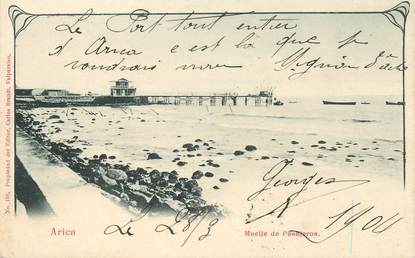 Le Port tout entier
d'Arica c'est là que je
voudrais
Georges
Le 28/3 1904
Arica
Muelle de Pasajeros.
No. 136. Propiedad del Editor, Carlos Brandt, Valparaiso.